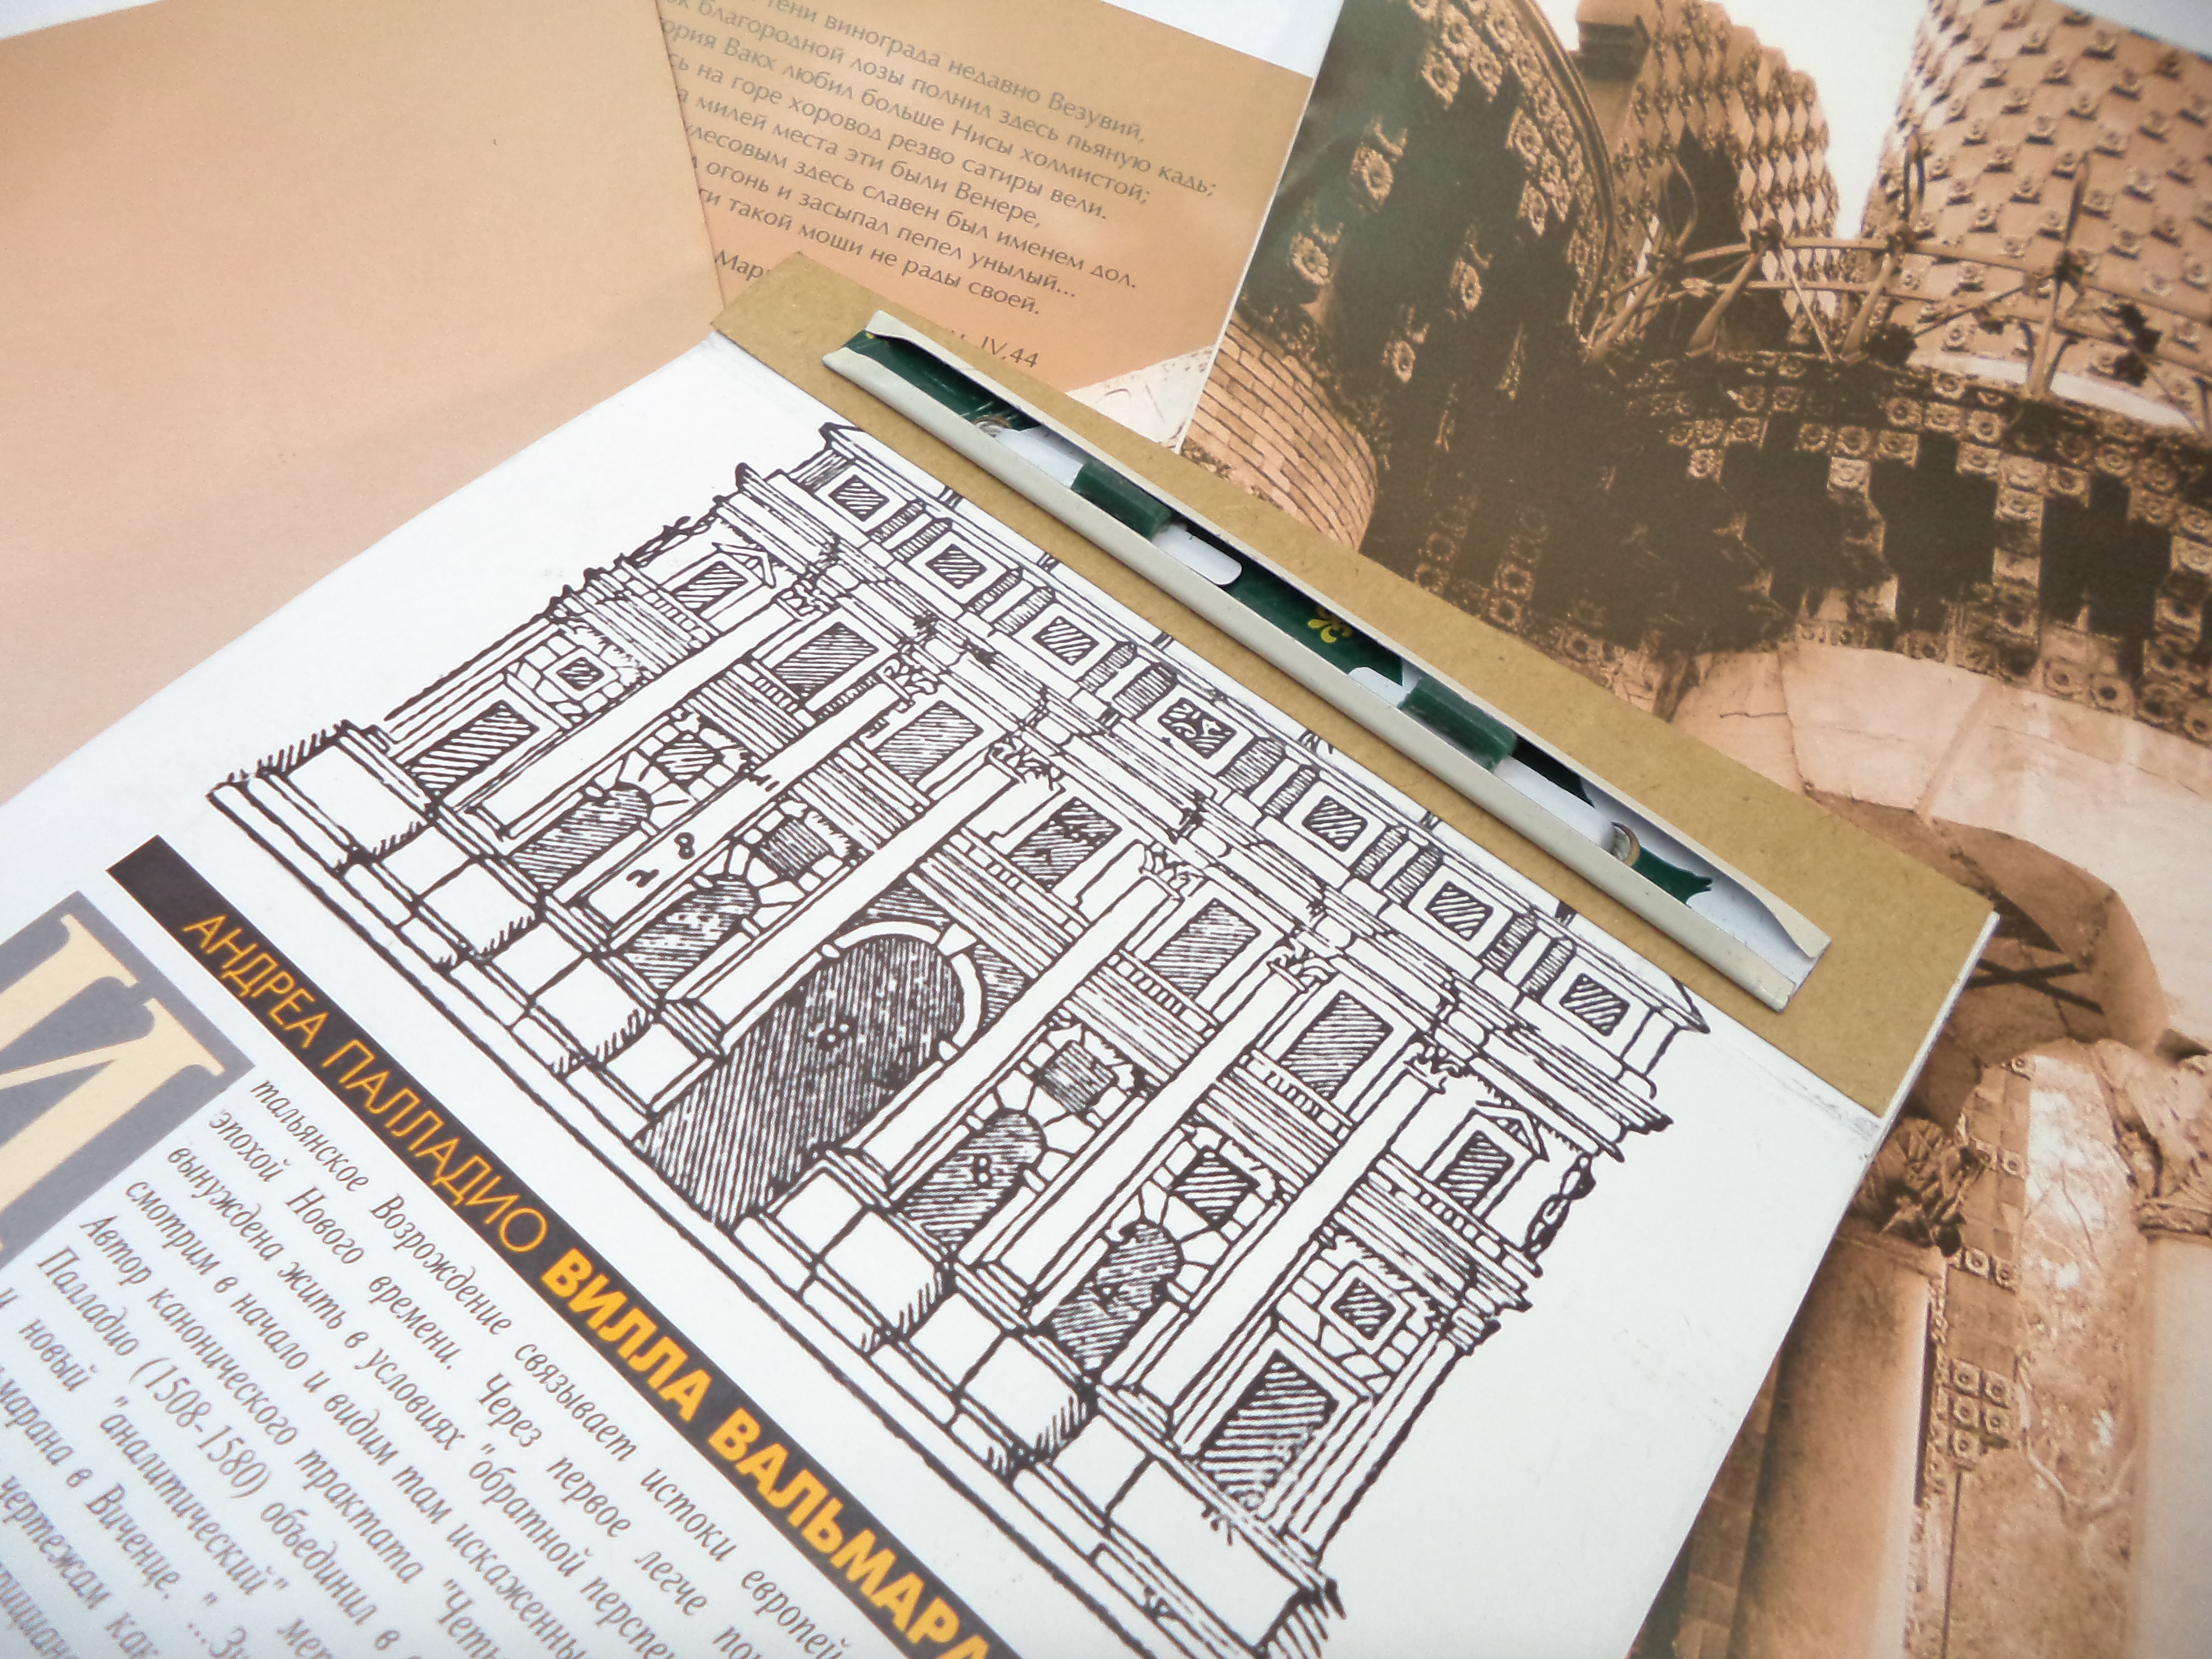 тени винограда недавно Везувий,
благородной лозы полнил здесь пьяную кадь;
Вакх любил больше Нисы холмистой;
на горе хоровод резво сатиры вели.
милей места эти были Венере,
здесь славен был именем дол.
огонь и засыпал пепел унылый...
такой мощи не рады своей.
IV,44
АНДРЕА ПАЛЛАДИО ВИЛЛА ВАЛЬМАРА
И
тальянское Возрождение связывает истоки европей
эпохой Нового времени. Через первое легче
вынуждена жить в условиях "обратной
смотрим в начало и видим там
Автор канонического трактата "Четы
Палладио (1508-1580) объединил в
и новый "аналитический"
марана в Виченце. "...Зн
чертежам как